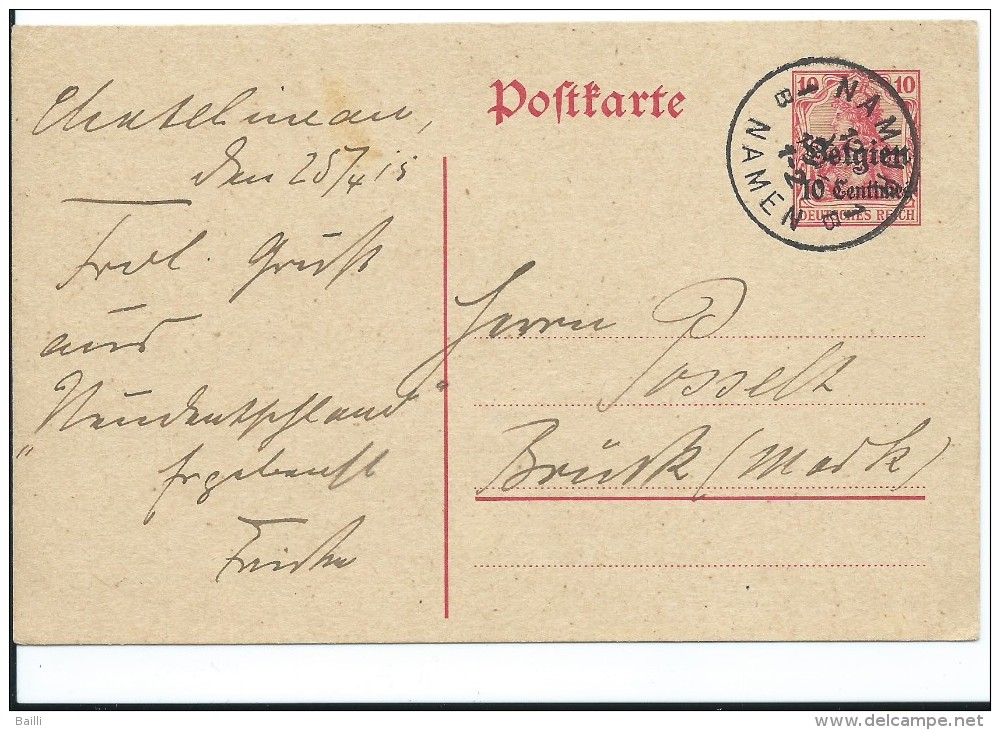 Chatelineau,
den 25/4 15
Frdl. Gruß
aus
"Neudeutschland"
Ergebenst
Postkarte
10 10
Belgien
10 Centimes
DEUTSCHES REICH
NAMUR 1
NAMEN
Herrn P
Posselt
Brück (Mark)
Bailli
www.delcampe.net